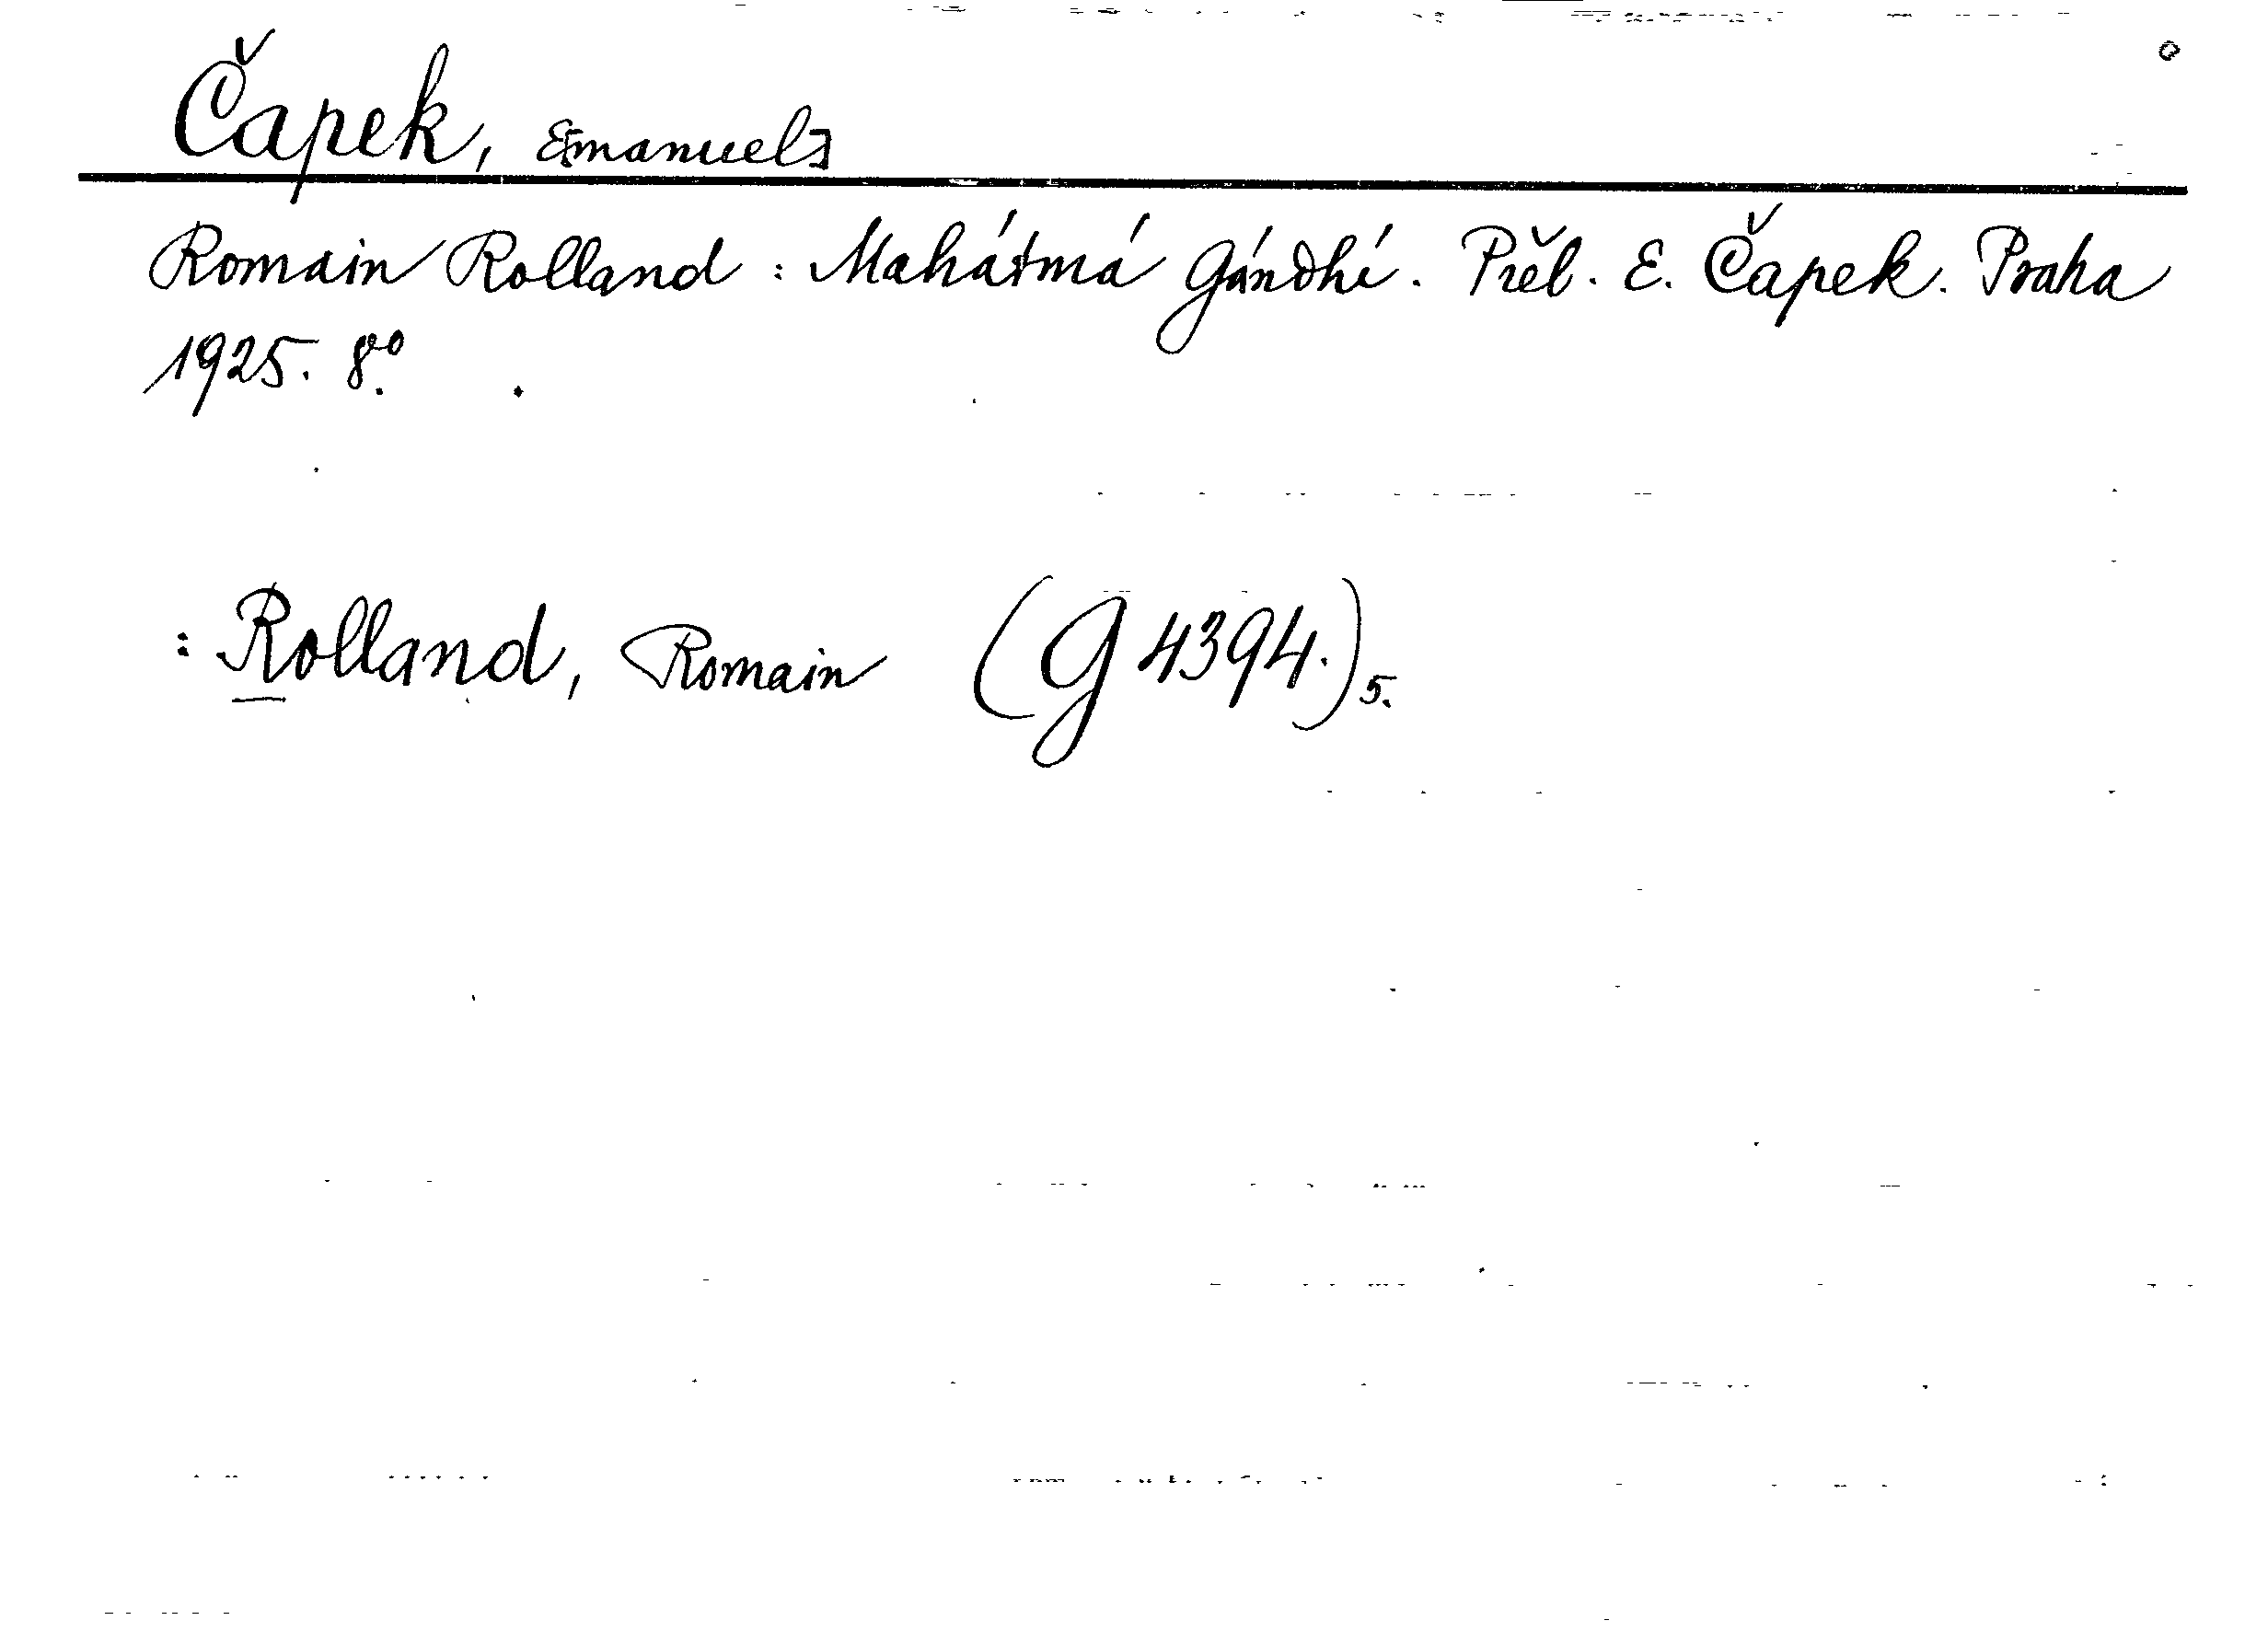 Čapek, E[manuel]
Romain Rolland : Mahátmá Gándhí. Přel. E. Čapek. Praha
1925. 8º.
: Rolland, Romain (G 4394.) 5.